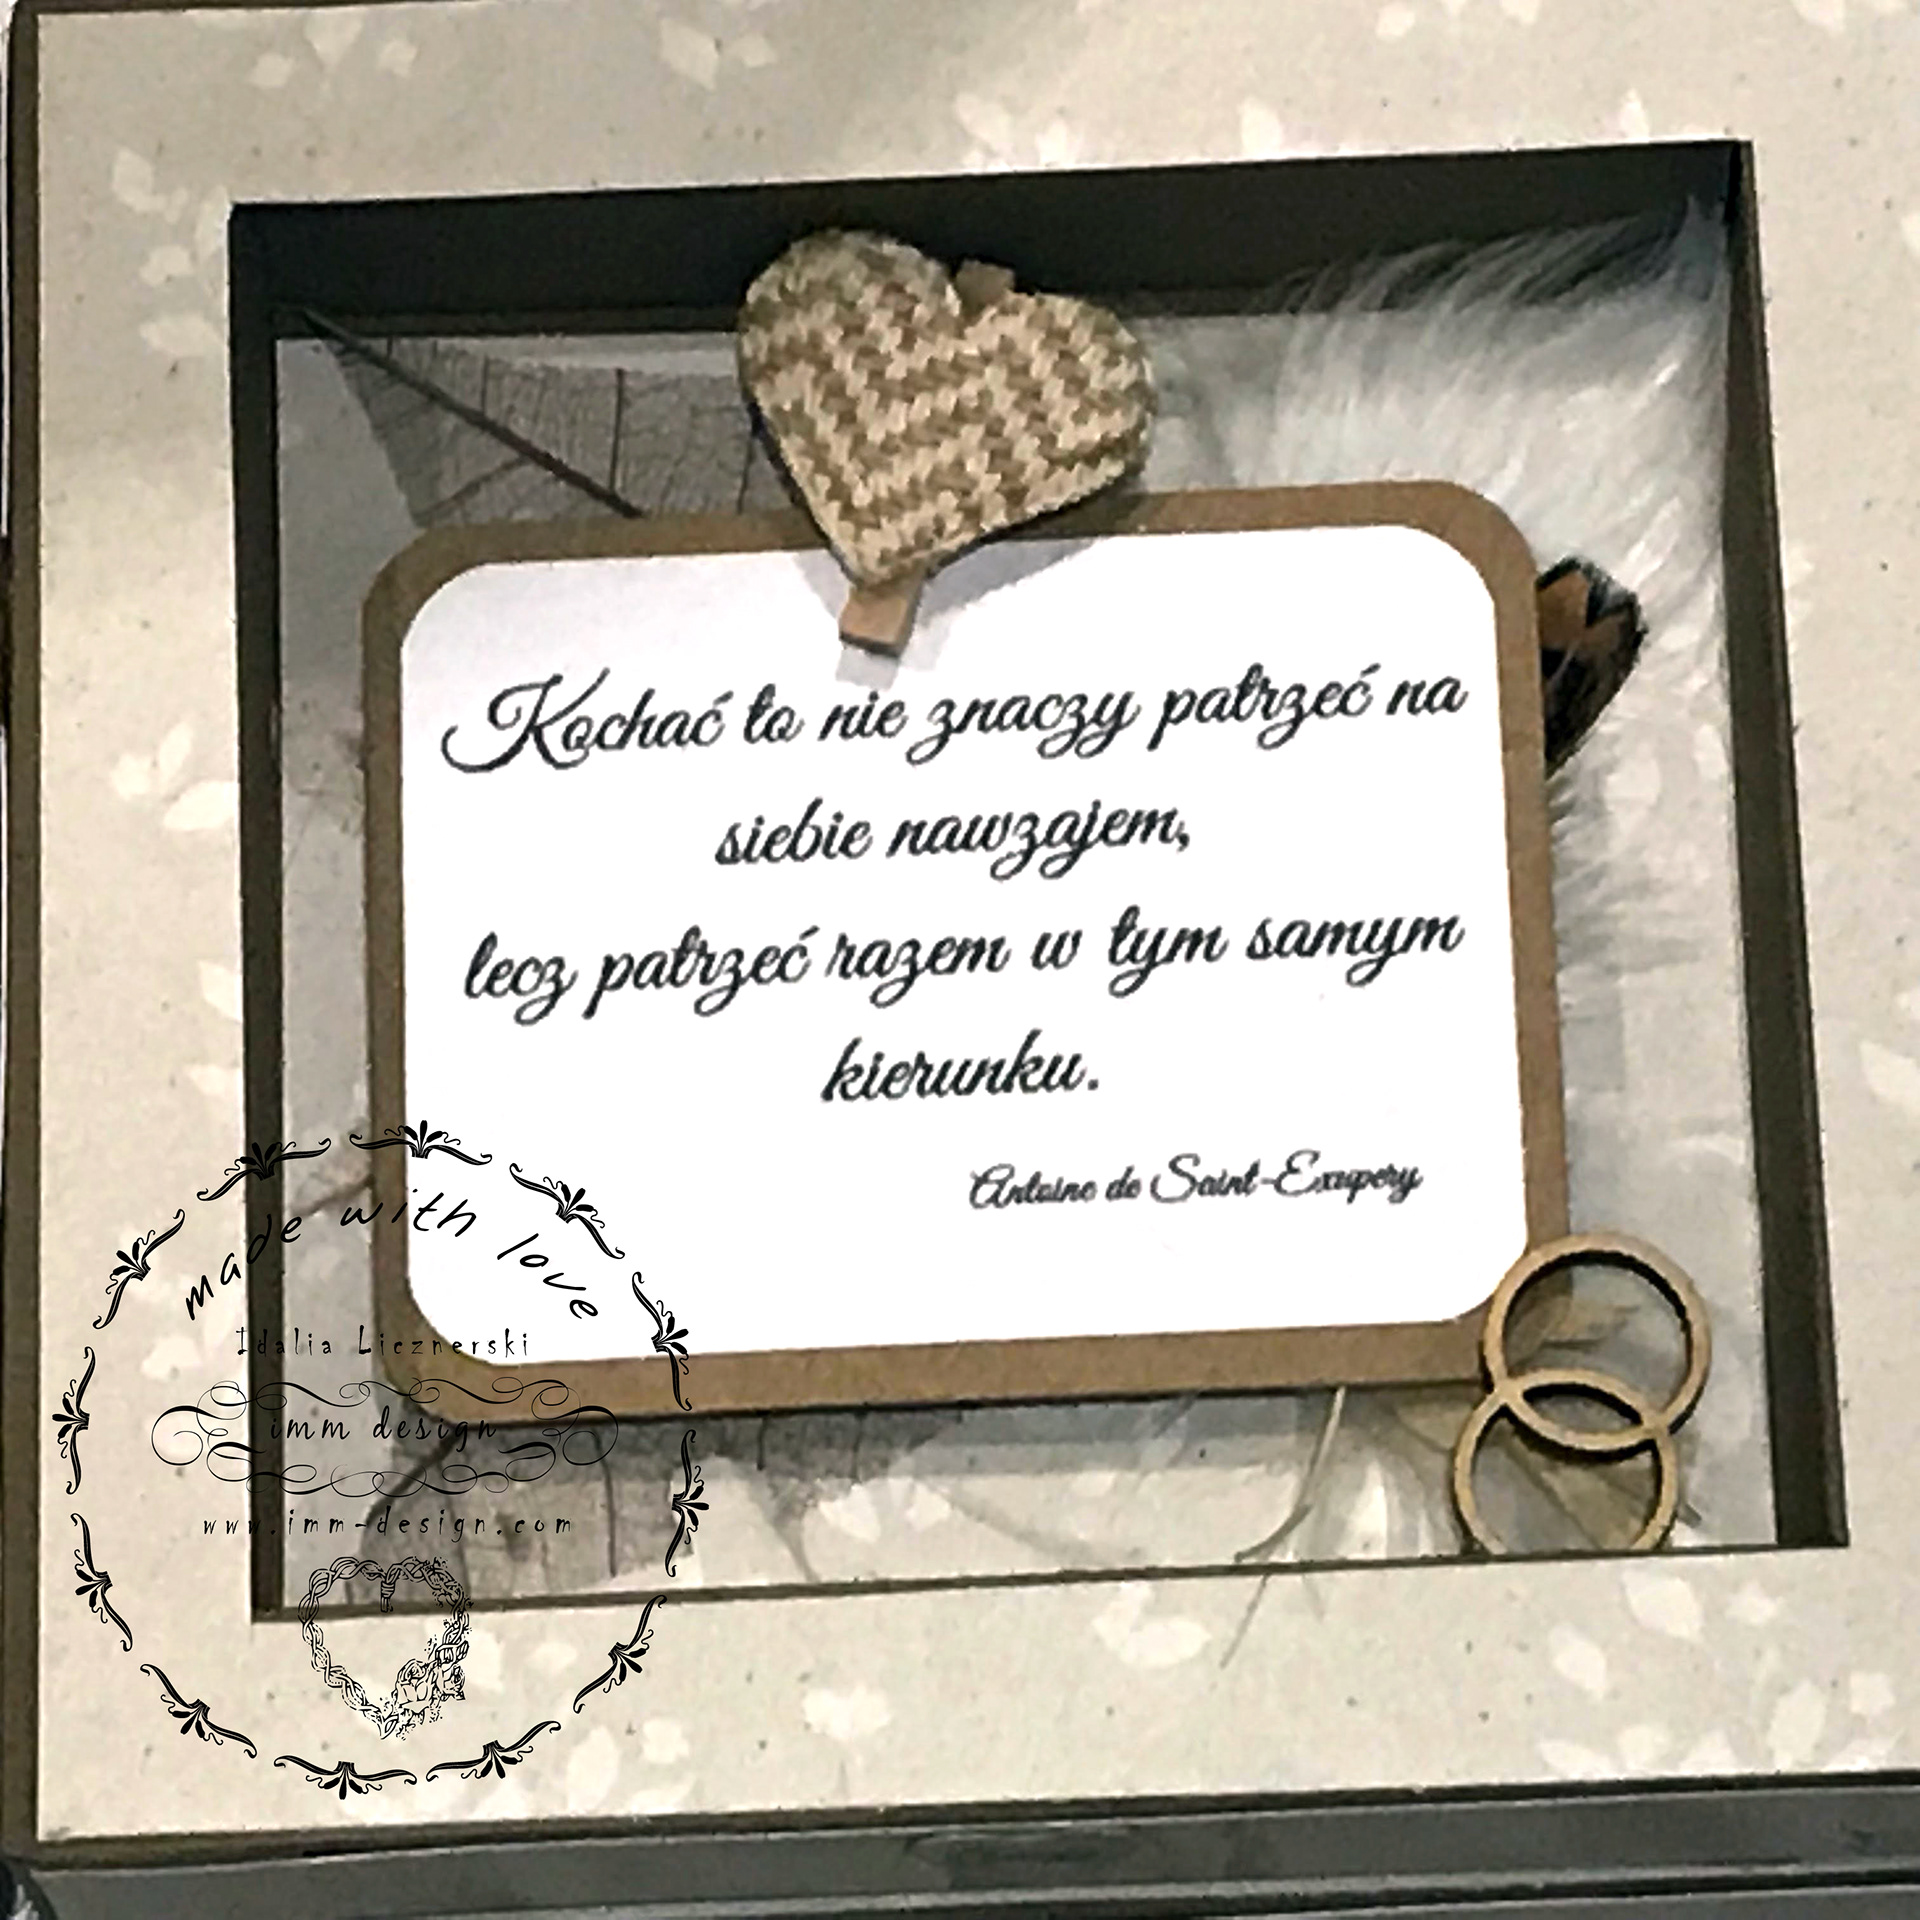 Kochać to nie znaczy patrzeć na
siebie nawzajem,
lecz patrzeć razem w tym samym
kierunku.
Antoine de Saint-Exupery
made with love
Idalia Licznerski
imm design
www.imm-design.com